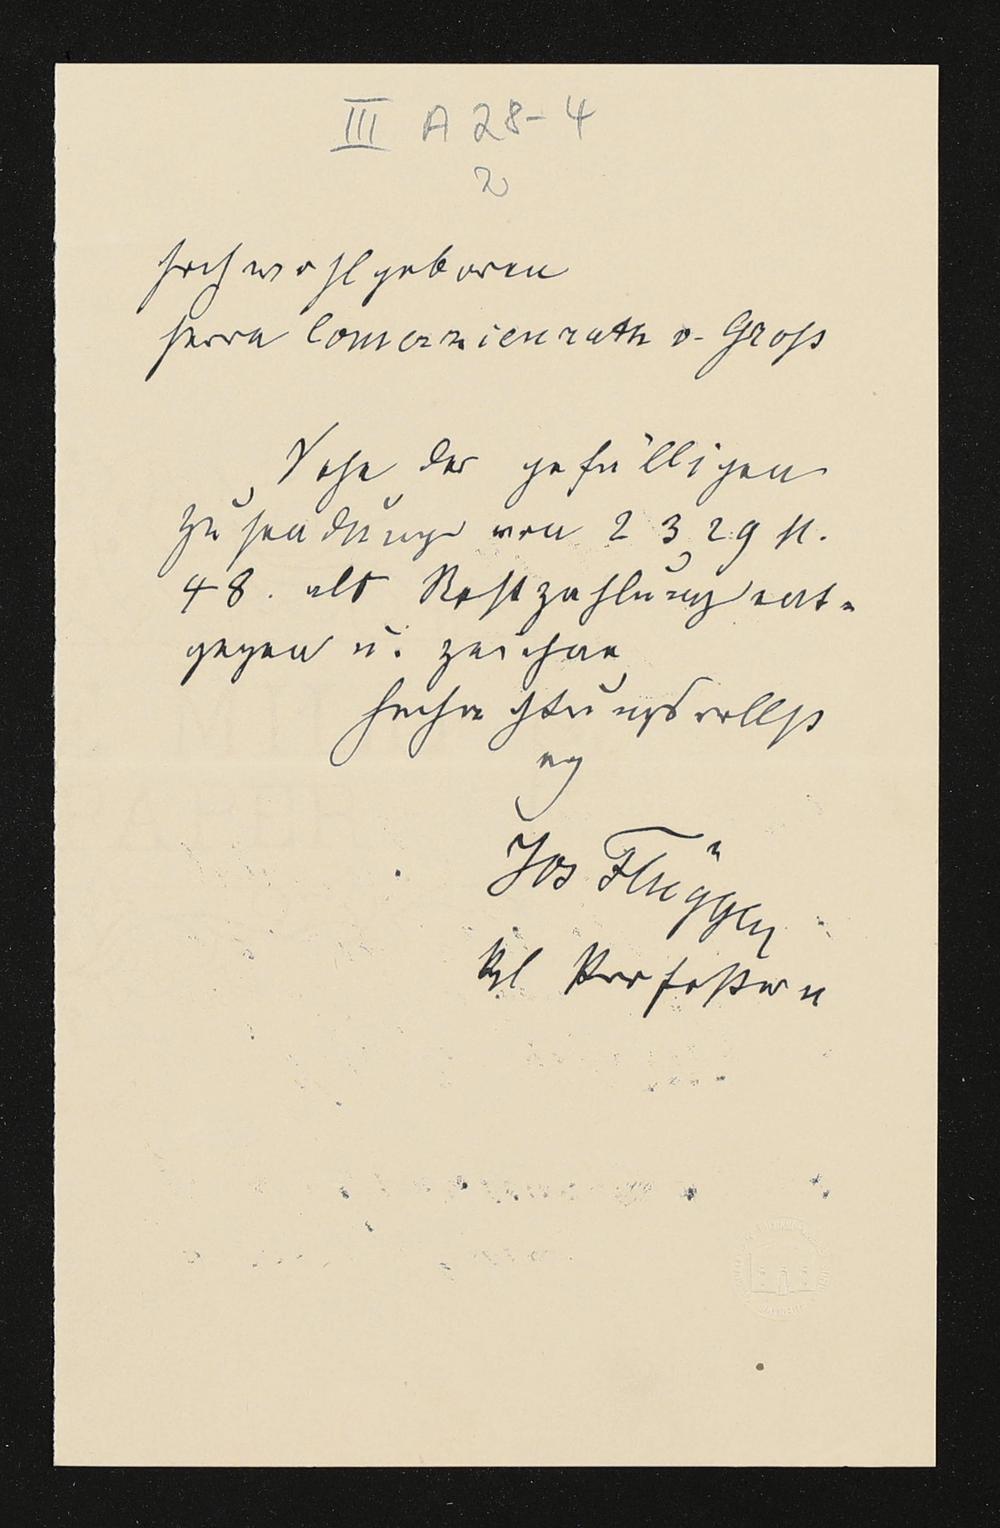 III A 28-4
2
Hochwohlgeboren
Herrn Comerzienrath v. Groß
Sehe der gefälligen
Zusendung von 2329 M.
48. als Restzahlung ent-
gegen u. zeichne
Hochachtungsvollst
Jos Flüggen
Kgl Professor